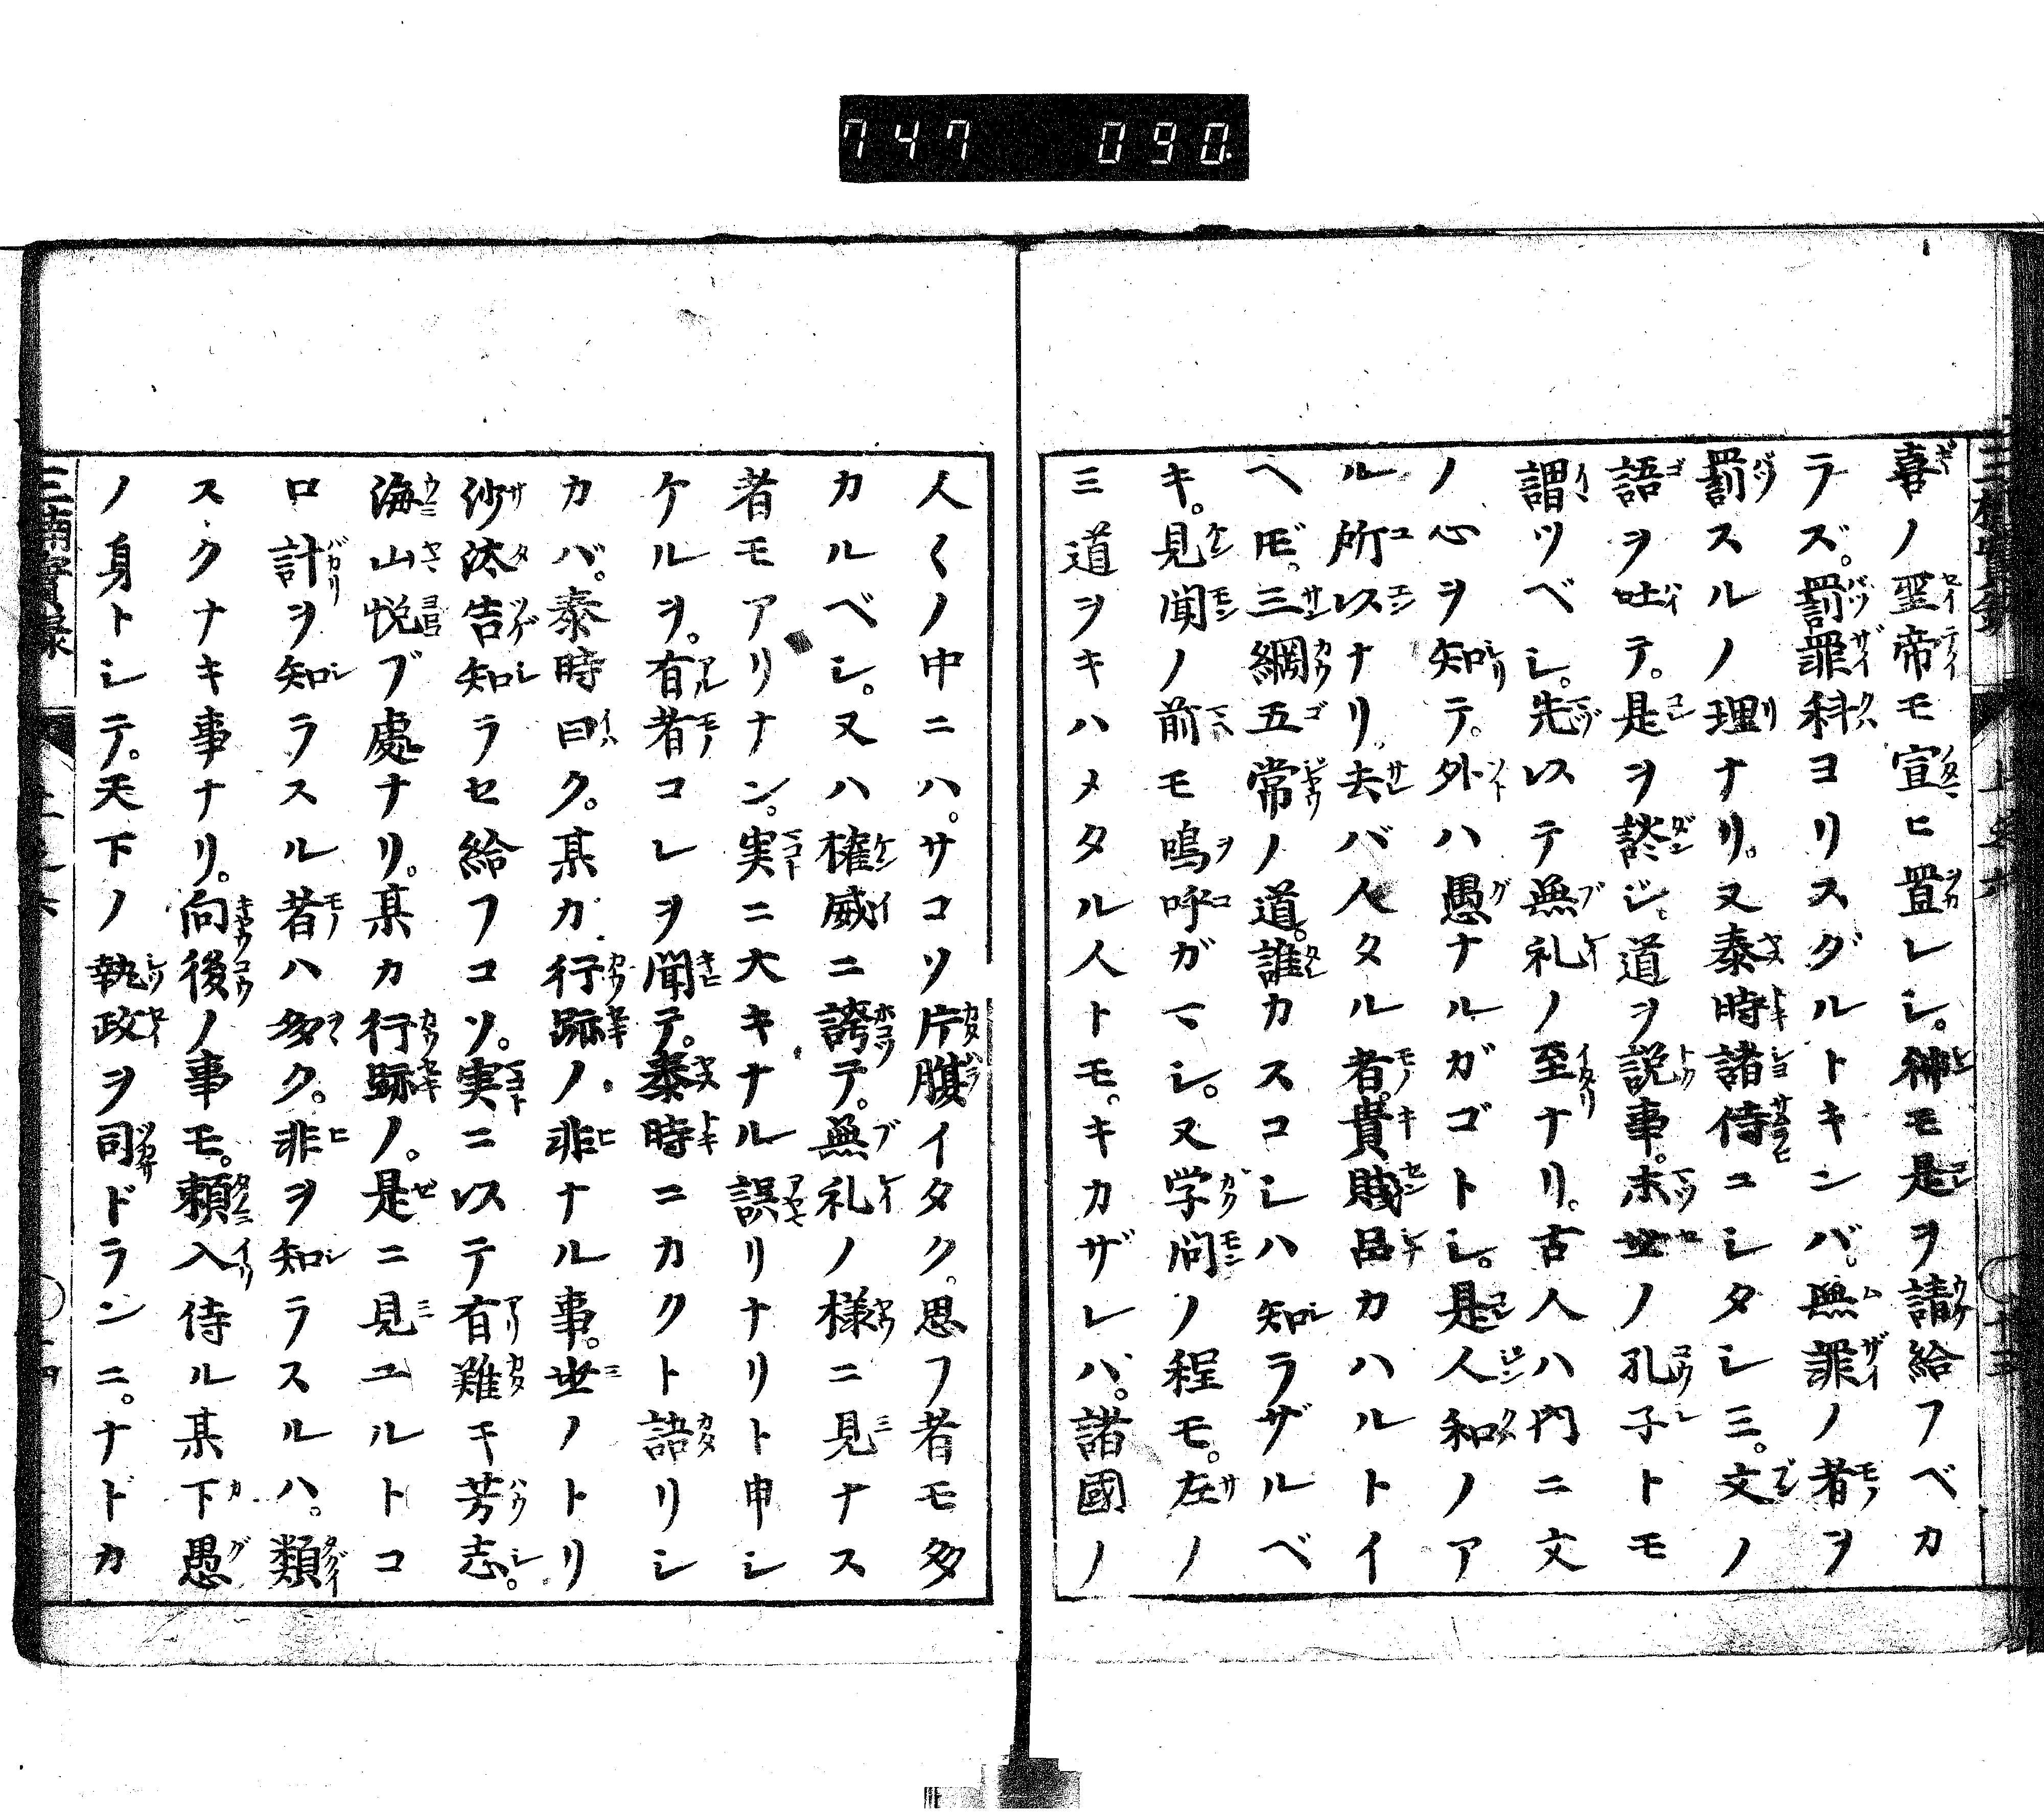 747 090
喜ノ聖帝モ宣ヒ置レシ。神モ是ヲ請給フベカ
ラズ。罰罪科ヨリスグルトキンバ。無罪ノ者ヲ
罰スルノ理ナリ。又泰時諸侍ニシタシミ。文ノ
語ヲ吐テ。是ヲ談ジ。道ヲ説事。末世ノ孔子トモ
謂ツベシ。先以テ無礼ノ至ナリ。古人ハ門ニ文
ノ心ヲ知テ。外ハ愚ナルガゴトシ。是人和ノア
ル所以ナリ。去バ人タル者。貴賎品カハルトイ
ヘ𪜈。三綱五常ノ道。誰カスコシハ知ラザルベ
キ。見聞ノ前モ嗚呼ガマシ。又学問ノ程モ。左ノ
三道ヲキハメタル人トモ。キカザレバ。諸國ノ
人〱ノ中ニハ。サコソ片腹イタク。思フ者モ多
カルベシ。又ハ権威ニ誇テ。無礼ノ様ニ見ナス
者モアリナン。実ニ大キナル誤リナリト申シ
ケルヲ。有者コレヲ聞テ。泰時ニカクト語リシ
カバ。泰時曰ク。某カ行跡ノ非ナル事。世ノトリ
沙汰告知ラセ給フコソ。実ニ以テ有難キ芳志。
海山悦ブ處ナリ。某カ行跡ノ。是ニ見ユルトコ
ロ計ヲ知ラスル者ハ多ク。非ヲ知ラスルハ。類
スクナキ事ナリ。向後ノ事モ。頼入侍ル某下愚
ノ身トシテ。天下ノ執政ヲ司ドランニ。ナドカ